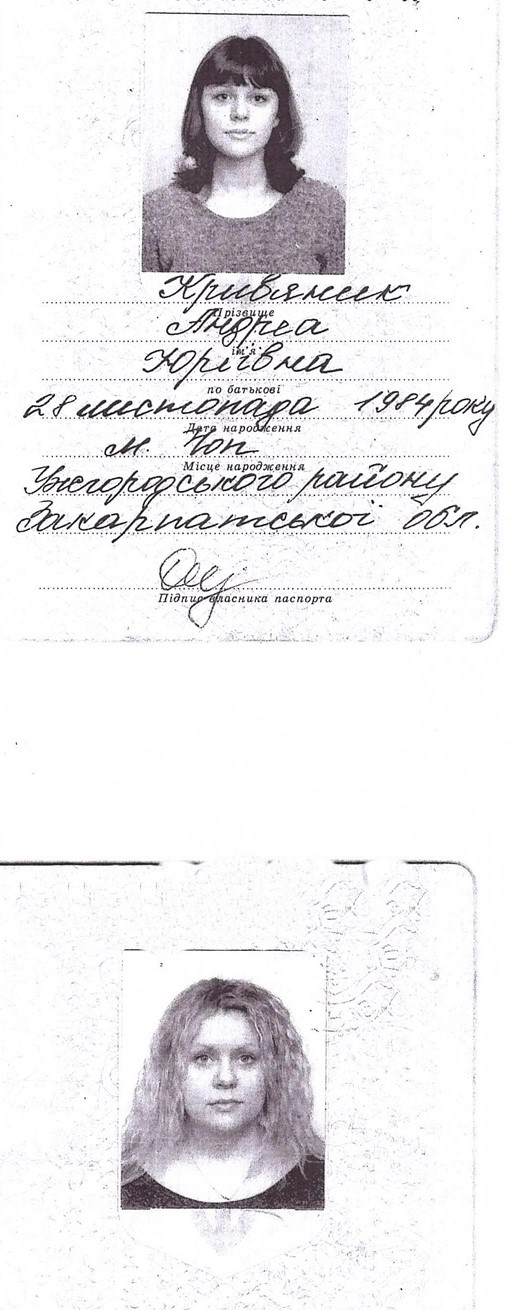 Кривянчик
Прізвище
Андреа
ім'я
Юріївна
по батькові
28 листопада 1984 року
Дата народження
м. Чоп
Місце народження
Ужгородського району
Закарпатської обл.
Підпис власника паспорта